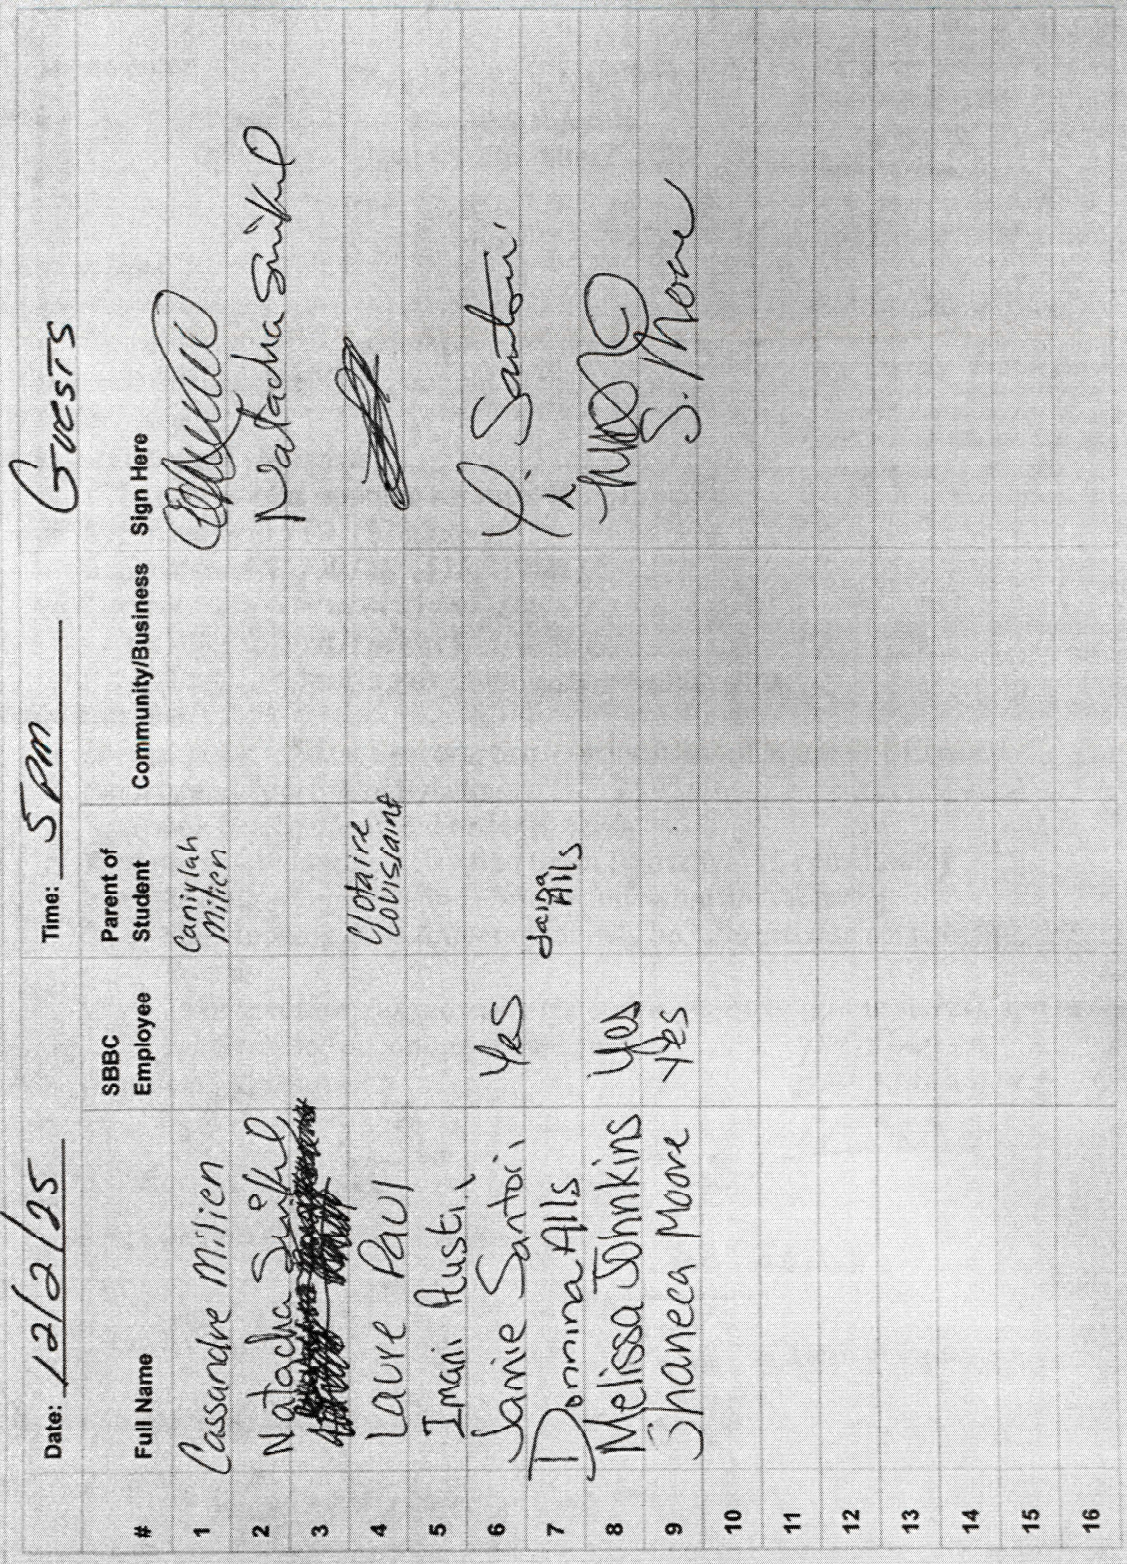 Date: 12/2/25 Time: 5 pm Guests
# Full Name SBBC Employee Parent of Student Community/Business Sign Here
1 Cassandre Milien Caniylah Milien
2 Natacha Natacha
3
4 Laure Paul Clotaire Louissaint
5 Imani Austin
6 Jamie Santori Yes Y. Santori
7 Donnina Alls Jaina Alls
8 Melissa Johnkins Yes
9 Shaneca Moore Yes S. Moore
10
11
12
13
14
15
16